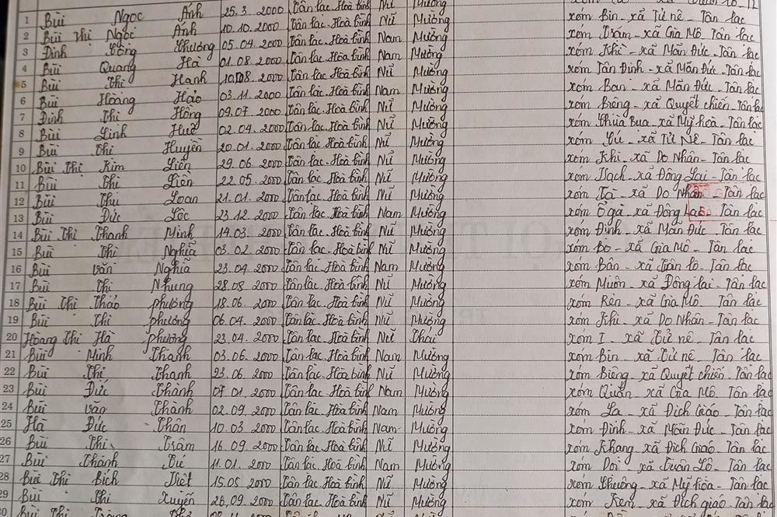 1 Bùi Ngọc Anh 25.3.2000 Tân Lạc. Hoà bình Nữ Mường xóm Bin - xã Tử nê - Tân lạc
2 Bùi Thị Ngọc Anh 10.10.2000 Tân lạc. Hoà bình Nữ Mường xóm Trám - xã Gia Mô. Tân lạc
3 Đinh Công Phương 05.04.2000 Tân lạc. Hoà bình Nam Mường xóm - xã Mãn Đức. Tân lạc
4 Bùi Quang Hà 01.08.2000 Tân lạc. Hoà bình Nam Mường xóm Tân Định - xã Mãn Đức - Tân lạc
5 Bùi Thị Hạnh 10.08.2000 Tân lạc. Hoà bình Nữ Mường xóm Ban - xã Mãn Đức. Tân lạc
6 Bùi Hoàng Hảo 03.11.2000 Tân lạc. Hoà bình Nam Mường xóm Biêng - xã Quyết chiến. Tân lạc
7 Đinh Thị Hồng 09.07.2000 Tân lạc. Hoà bình Nữ Mường xóm - xã Mỹ hoà - Tân lạc
8 Bùi Linh Huệ 02.04.2000 Tân lạc. Hoà bình Nữ Mường xóm - xã Tử Nê - Tân lạc
9 Bùi Thị Huyền 20.01.2000 Tân lạc. Hoà bình Nữ Mường xóm Khi - xã Do Nhân - Tân lạc
10 Bùi Thị Kim Liên 29.06.2000 Tân lạc. Hoà bình Nữ Mường xóm Bạch - xã Đông Lai - Tân lạc
11 Bùi Thị Liên 22.05.2000 Tân lạc. Hoà bình Nữ Mường xóm - xã Do Nhân - Tân lạc
12 Bùi Thị Loan 21.01.2000 Tân lạc. Hoà bình Nữ Mường xóm Ô gà - xã Đông Lai - Tân lạc
13 Bùi Đức Lộc 23.12.2000 Tân lạc. Hoà bình Nam Mường xóm Định - xã Mãn Đức. Tân lạc
14 Bùi Thị Thanh Minh 14.03.2000 Tân lạc. Hoà bình Nữ Mường xóm Bo - xã Gia Mô. Tân lạc
15 Bùi Thị Nghĩa 03.02.2000 Tân lạc. Hoà bình Nữ Mường xóm Bân - xã Tuân lộ. Tân lạc
16 Bùi văn Nghĩa 23.04.2000 Tân lạc. Hoà bình Nam Mường xóm Muôn - xã Đông lai - Tân lạc
17 Bùi Thị Nhung 28.08.2000 Tân lạc. Hoà bình Nữ Mường xóm Rên - xã Gia Mô. Tân lạc
18 Bùi Thị Thảo phương 18.06.2000 Tân lạc. Hoà bình Nữ Mường xóm Khi - xã Do Nhân - Tân lạc
19 Bùi Thị phương 06.04.2000 Tân lạc. Hoà bình Nữ Mường xóm I - xã Tử nê - Tân lạc
20 Hoàng Thị Hà phương 23.04.2000 Tân lạc. Hoà bình Nữ Thái xóm Bin - xã Tử nê - Tân lạc
21 Bùi Minh Thanh 03.06.2000 Tân lạc. Hoà bình Nam Mường xóm Biêng - xã Quyết chiến - Tân lạc
22 Bùi Thị Thanh 23.06.2000 Tân lạc. Hoà bình Nữ Mường xóm Quắn - xã Gia Mô. Tân lạc
23 Bùi Đức Thành 07.01.2000 Tân lạc. Hoà bình Nam Mường xóm La - xã Địch Giáo - Tân lạc
24 Bùi văn Thành 02.09.2000 Tân lạc. Hoà bình Nam Mường xóm Định - xã Mãn Đức - Tân lạc
25 Hà Đức Thân 10.03.2000 Tân lạc. Hoà bình Nam Mường xóm Khang - xã Địch Giáo - Tân lạc
26 Bùi Thị Trâm 16.09.2000 Tân lạc. Hoà bình Nữ Mường xóm - xã Tuân Lộ - Tân lạc
27 Bùi Thành Tú 11.01.2000 Tân lạc. Hoà bình Nam Mường xóm - xã Mỹ hoà - Tân lạc
28 Bùi Thị Bích Tiết 15.05.2000 Tân lạc. Hoà bình Nữ Mường xóm Kem - xã Địch giáo - Tân lạc
29 Bùi Thị Tuyến 26.09.2000 Tân lạc. Hoà bình Nữ Mường